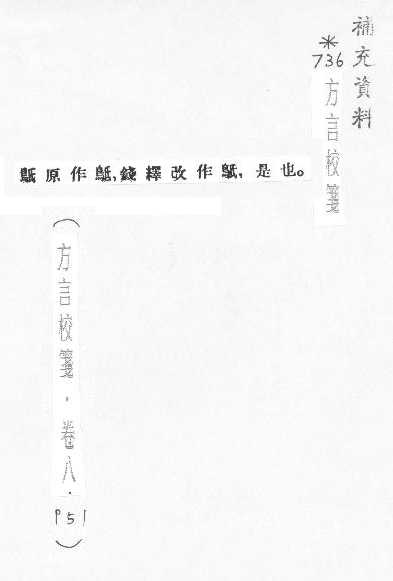 補充資料
*736
方言校箋
原作,錢繹改作,是也。
(方言校箋.卷八.P51)